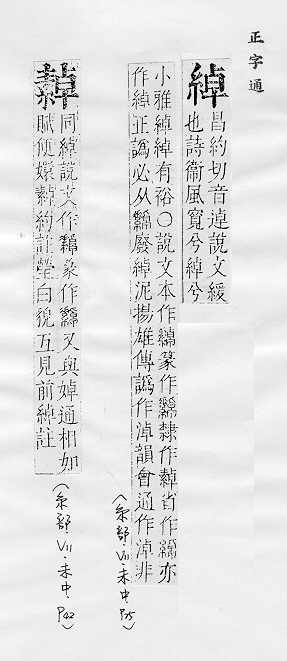 正字通
綽
昌約切音逴說文緩
也詩衞風寬兮綽兮
小雅綽綽有裕〇說文本作篆作隷作省作亦
作綽正譌必从廢綽泥揚雄傳譌作淖韻會通作淖非
(糸部·VII·未中 P75)
繛
同綽說文作篆作又與婥通相如
賦便嬛繛約註瑩白貌互見前綽註
(糸部·VII·未中 P42)